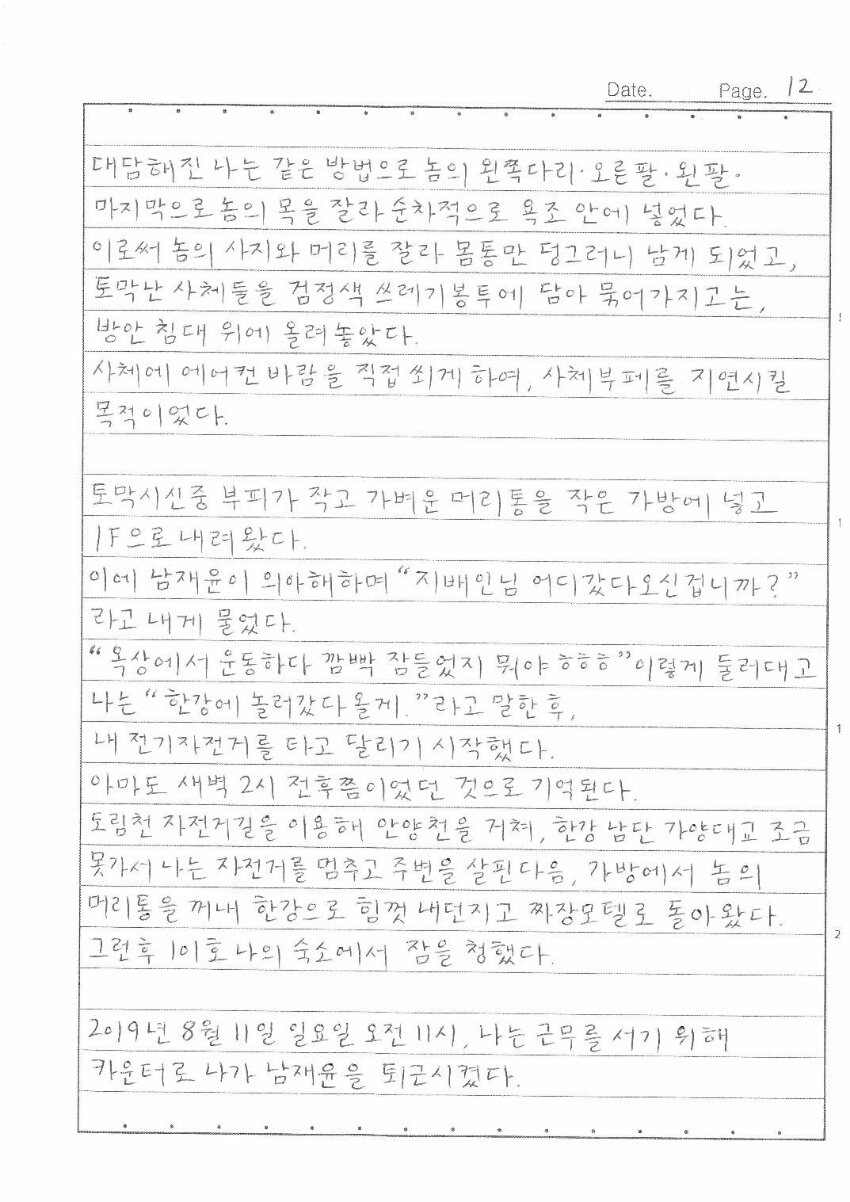 Date. Page. 12
대담해진 나는 같은 방법으로 놈의 왼쪽다리·오른팔·왼팔·
마지막으로 놈의 목을 잘라 순차적으로 욕조 안에 넣었다.
이로써 놈의 사지와 머리를 잘라 몸통만 덩그러니 남게 되었고,
토막난 사체들을 검정색 쓰레기봉투에 담아 묶어가지고는,
방안 침대 위에 올려놓았다.
사체에 에어컨 바람을 직접 쐬게 하여, 사체부페를 지연시킬
목적이었다.
토막시신중 부피가 작고 가벼운 머리통을 작은 가방에 넣고
1F으로 내려왔다.
이에 남재윤이 의아해하며 “지배인님 어디갔다오신겁니까?”
라고 내게 물었다.
“옥상에서 운동하다 깜빡 잠들었지 뭐야 ㅎㅎㅎ”이렇게 둘러대고
나는 “한강에 놀러갔다 올게.”라고 말한 후,
내 전기자전거를 타고 달리기 시작했다.
아마도 새벽 2시 전후쯤이었던 것으로 기억된다.
도림천 자전거길을 이용해 안양천을 거쳐, 한강 남단 가양대교 조금
못가서 나는 자전거를 멈추고 주변을 살핀다음, 가방에서 놈의
머리통을 꺼내 한강으로 힘껏 내던지고 짜장모텔로 돌아왔다.
그런후 101호 나의 숙소에서 잠을 청했다.
2019년 8월 11일 일요일 오전 11시, 나는 근무를 서기 위해
카운터로 나가 남재윤을 퇴근시켰다.